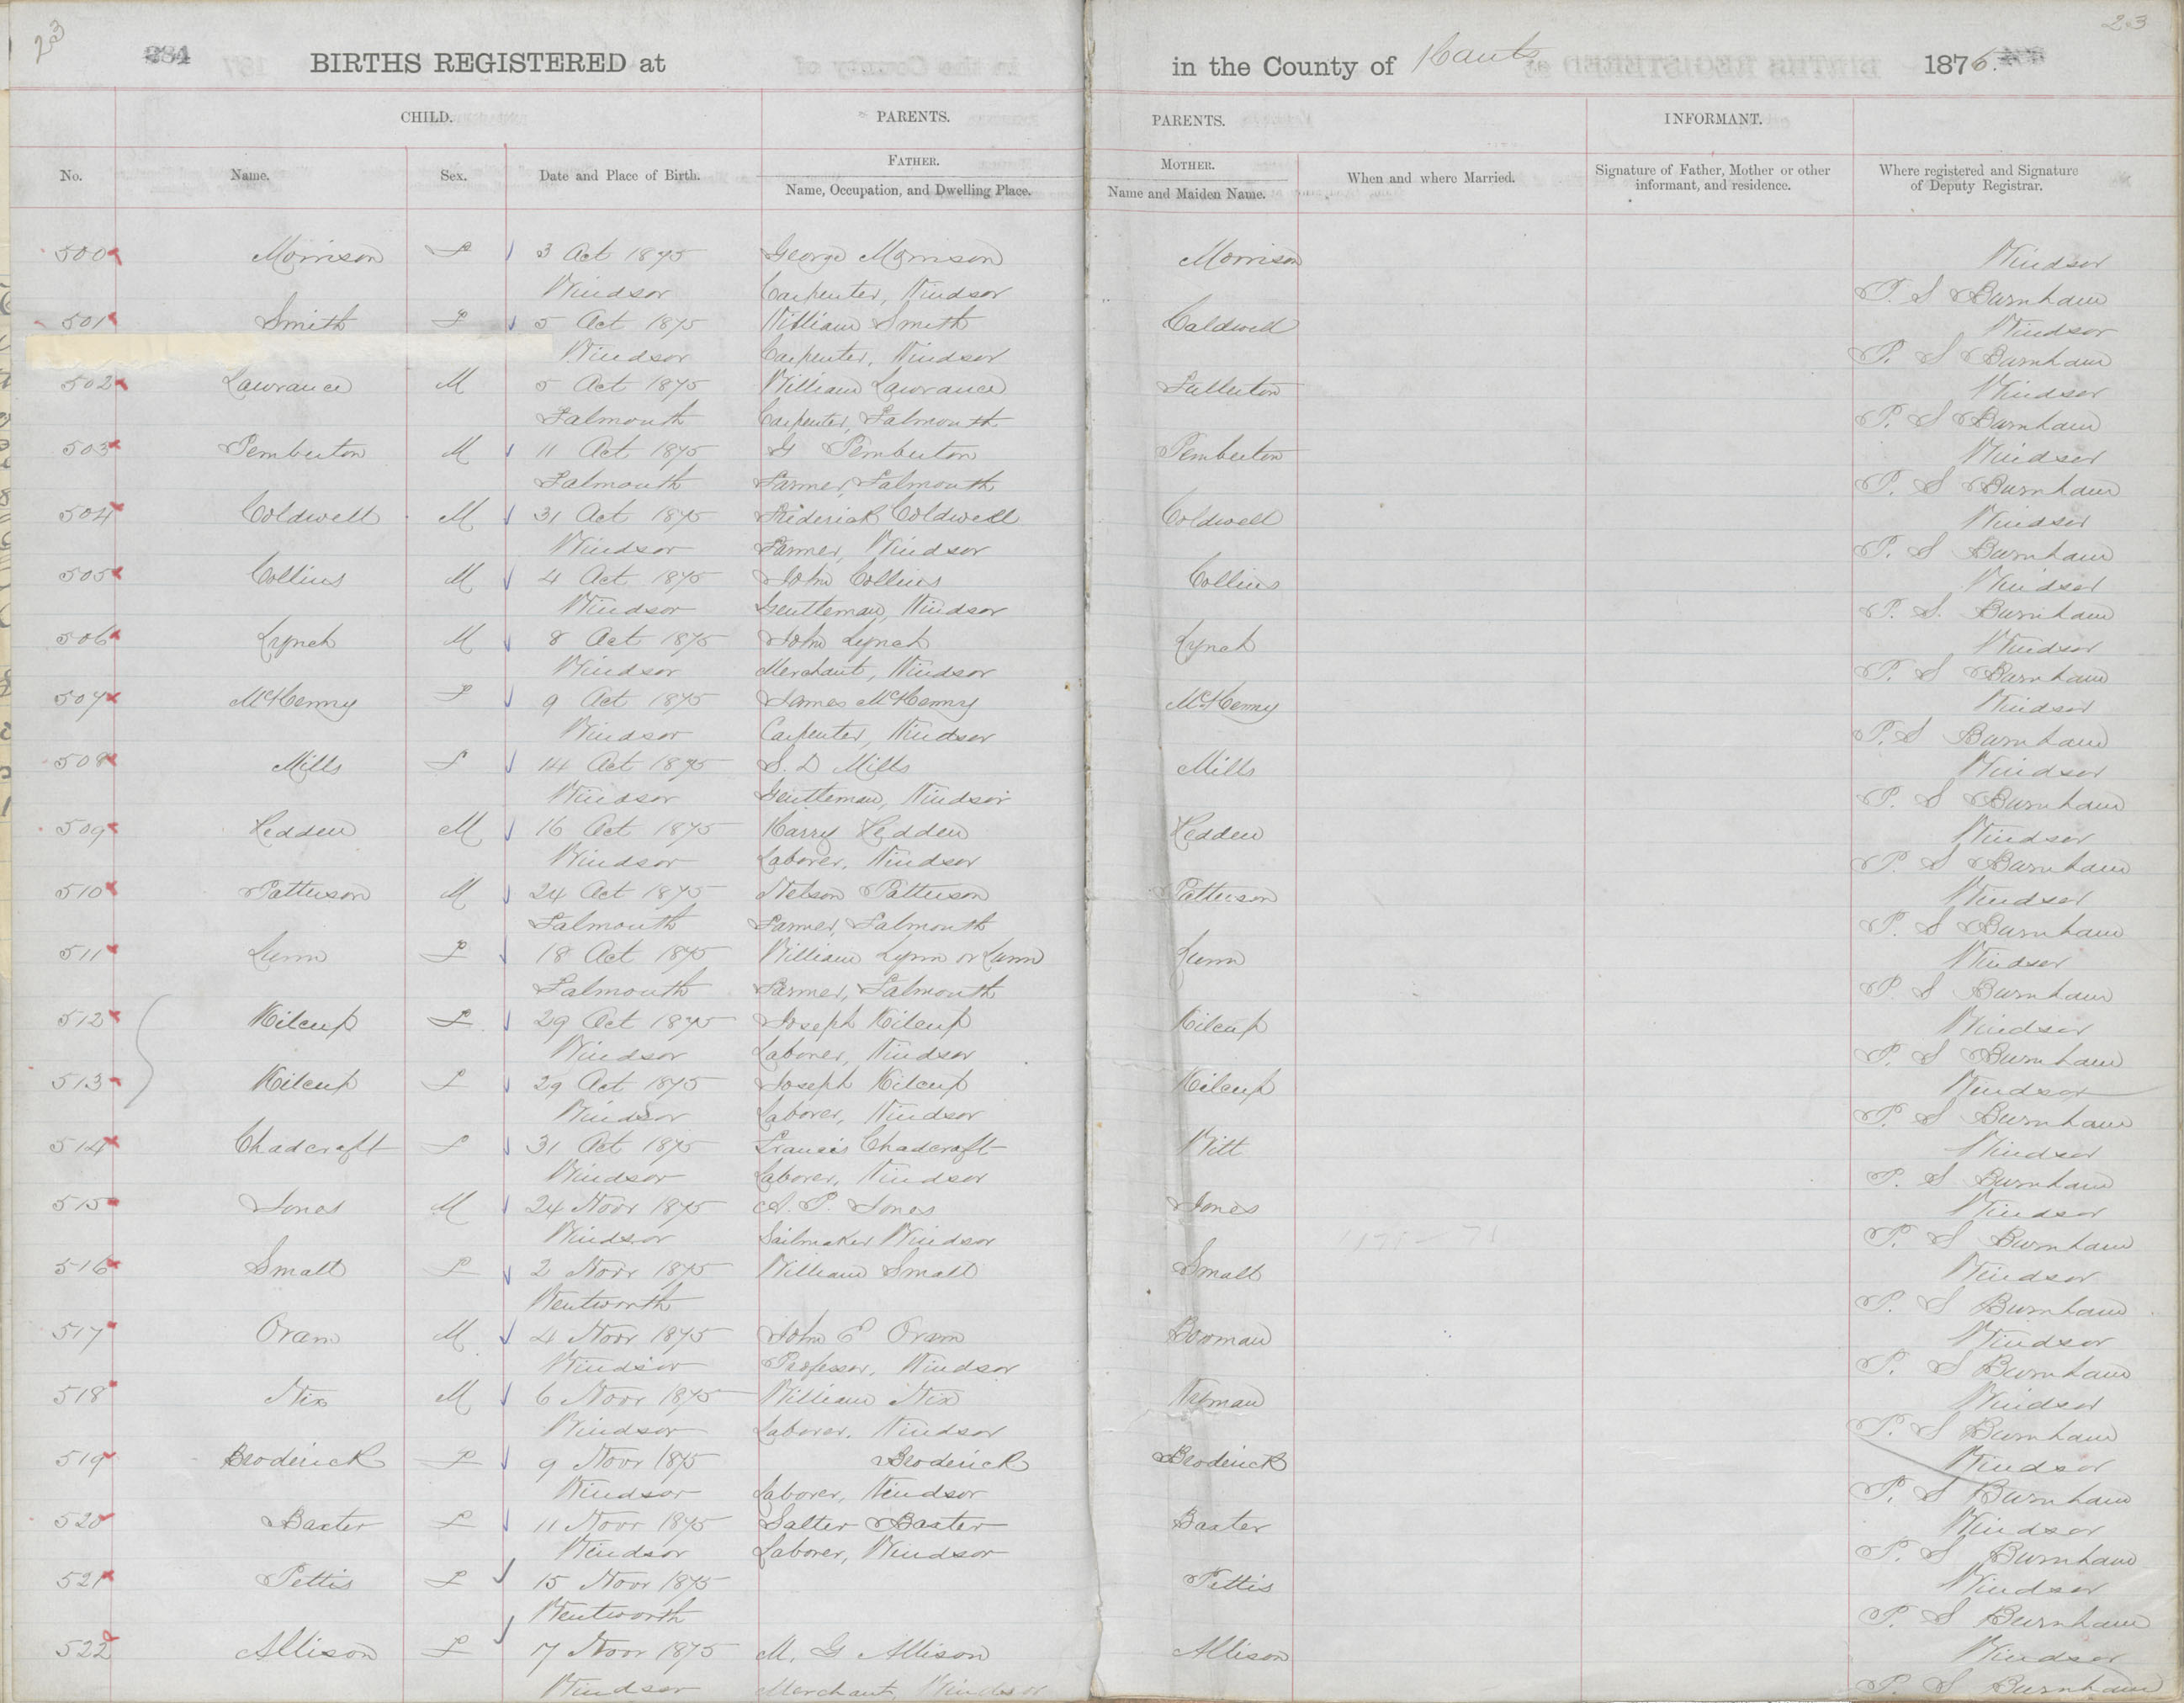 23
23
284
BIRTHS REGISTERED at
in the County of Hants
1876.
CHILD.
PARENTS.
PARENTS.
INFORMANT.
No.
Name.
Sex.
Date and Place of Birth.
FATHER.
Name, Occupation, and Dwelling Place.
MOTHER.
Name and Maiden Name.
When and where Married.
Signature of Father, Mother or other informant, and residence.
Where registered and Signature of Deputy Registrar.
500 Morrison F 3 Oct 1875 George Morrison Morrison Windsor
Windsor Carpenter, Windsor P. S Burnham
501 Smith F 5 Oct 1875 William Smith Caldwell Windsor
Windsor Carpenter, Windsor P. S Burnham
502 Lawrance M 5 Oct 1875 William Lawrance Fullerton Windsor
Falmouth Carpenter, Falmouth P. S Burnham
503 Pemberton M 11 Oct 1875 G Pemberton Pemberton Windsor
Falmouth Farmer, Falmouth P. S Burnham
504 Coldwell M 31 Oct 1875 Friderick Coldwell Coldwell Windsor
Windsor Farmer, Windsor P. S Burnham
505 Collins M 4 Oct 1875 John Collins Collins Windsor
Windsor Gentleman, Windsor P. S. Burnham
506 Lynch M 8 Oct 1875 John Lynch Lynch Windsor
Windsor Merchant, Windsor P. S Burnham
507 McHenry F 9 Oct 1875 James McHenry McHenry Windsor
Windsor Carpenter, Windsor P. S Burnham
508 Mills F 14 Oct 1875 S. D Mills Mills Windsor
Windsor Gentleman, Windsor P. S Burnham
509 Hedden M 16 Oct 1875 Harry Hedden Hedden Windsor
Windsor Laborer, Windsor P. S Burnham
510 Patterson M 24 Oct 1875 Nelson Patterson Patterson Windsor
Falmouth Farmer, Falmouth P. S Burnham
511 Lunn F 18 Oct 1875 William Lynn or Lunn Lunn Windsor
Falmouth Farmer, Falmouth P. S Burnham
512 Kilcup F 29 Oct 1875 Joseph Kilcup Kilcup Windsor
Windsor Laborer, Windsor P. S Burnham
513 Kilcup F 29 Oct 1875 Joseph Kilcup Kilcup Windsor
Windsor Laborer, Windsor P. S Burnham
514 Chadcraft F 31 Oct 1875 Francis Chadcraft Witt Windsor
Windsor Laborer, Windsor P. S Burnham
515 Jones M 24 Novr 1875 A. P. Jones Jones Windsor
Windsor Sailmaker Windsor P. S Burnham
516 Small F 2 Novr 1875 William Small Small Windsor
Wentworth P. S Burnham
517 Oram M 4 Novr 1875 John E Oram Bowman Windsor
Windsor Professor, Windsor P. S Burnham
518 Nix M 6 Novr 1875 William Nix Windsor
Windsor Laborer, Windsor P. S Burnham
519 Broderick F 9 Novr 1875 Broderick Broderick Windsor
Windsor Laborer, Windsor P. S Burnham
520 Baxter F 11 Novr 1875 Salter Baxter Baxter Windsor
Windsor Laborer, Windsor P. S Burnham
521 Pettis F 15 Novr 1875 Pettis Windsor
Wentworth P. S Burnham
522 Allison F 17 Novr 1875 M. G Allison Allison Windsor
Windsor Merchant, Windsor P. S Burnham